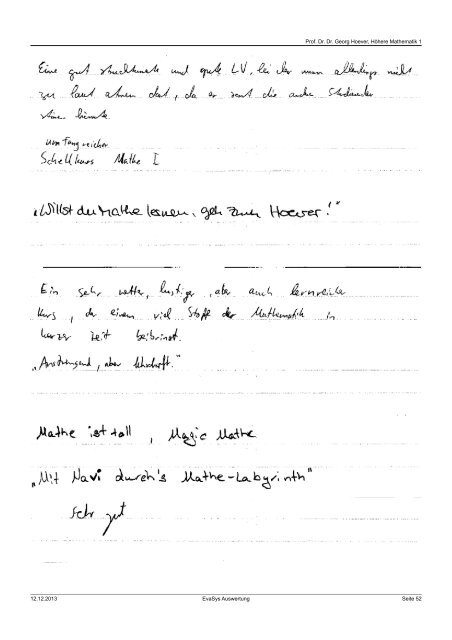 Prof. Dr. Dr. Georg Hoever, Höhere Mathematik 1
Eine gut strukturierte und gute LV, bei der man allerdings nicht
zu laut atmen darf, da es sonst die anderen Studenten
stören könnte
umfangreicher
Schellkurs Mathe I
„Willst du Mathe lernen, geh zum Hoever!"
Ein sehr netter, lustiger, aber auch lernreicher
Kurs, der einem viel Stoff der Mathematik in
kurzer Zeit beibringt.
„Anstrengend, aber lehrhaft."
Mathe ist toll, Magic Mathe
„Mit Navi durch's Mathe-Labyrinth"
Sehr gut
12.12.2013 EvaSys Auswertung Seite 52